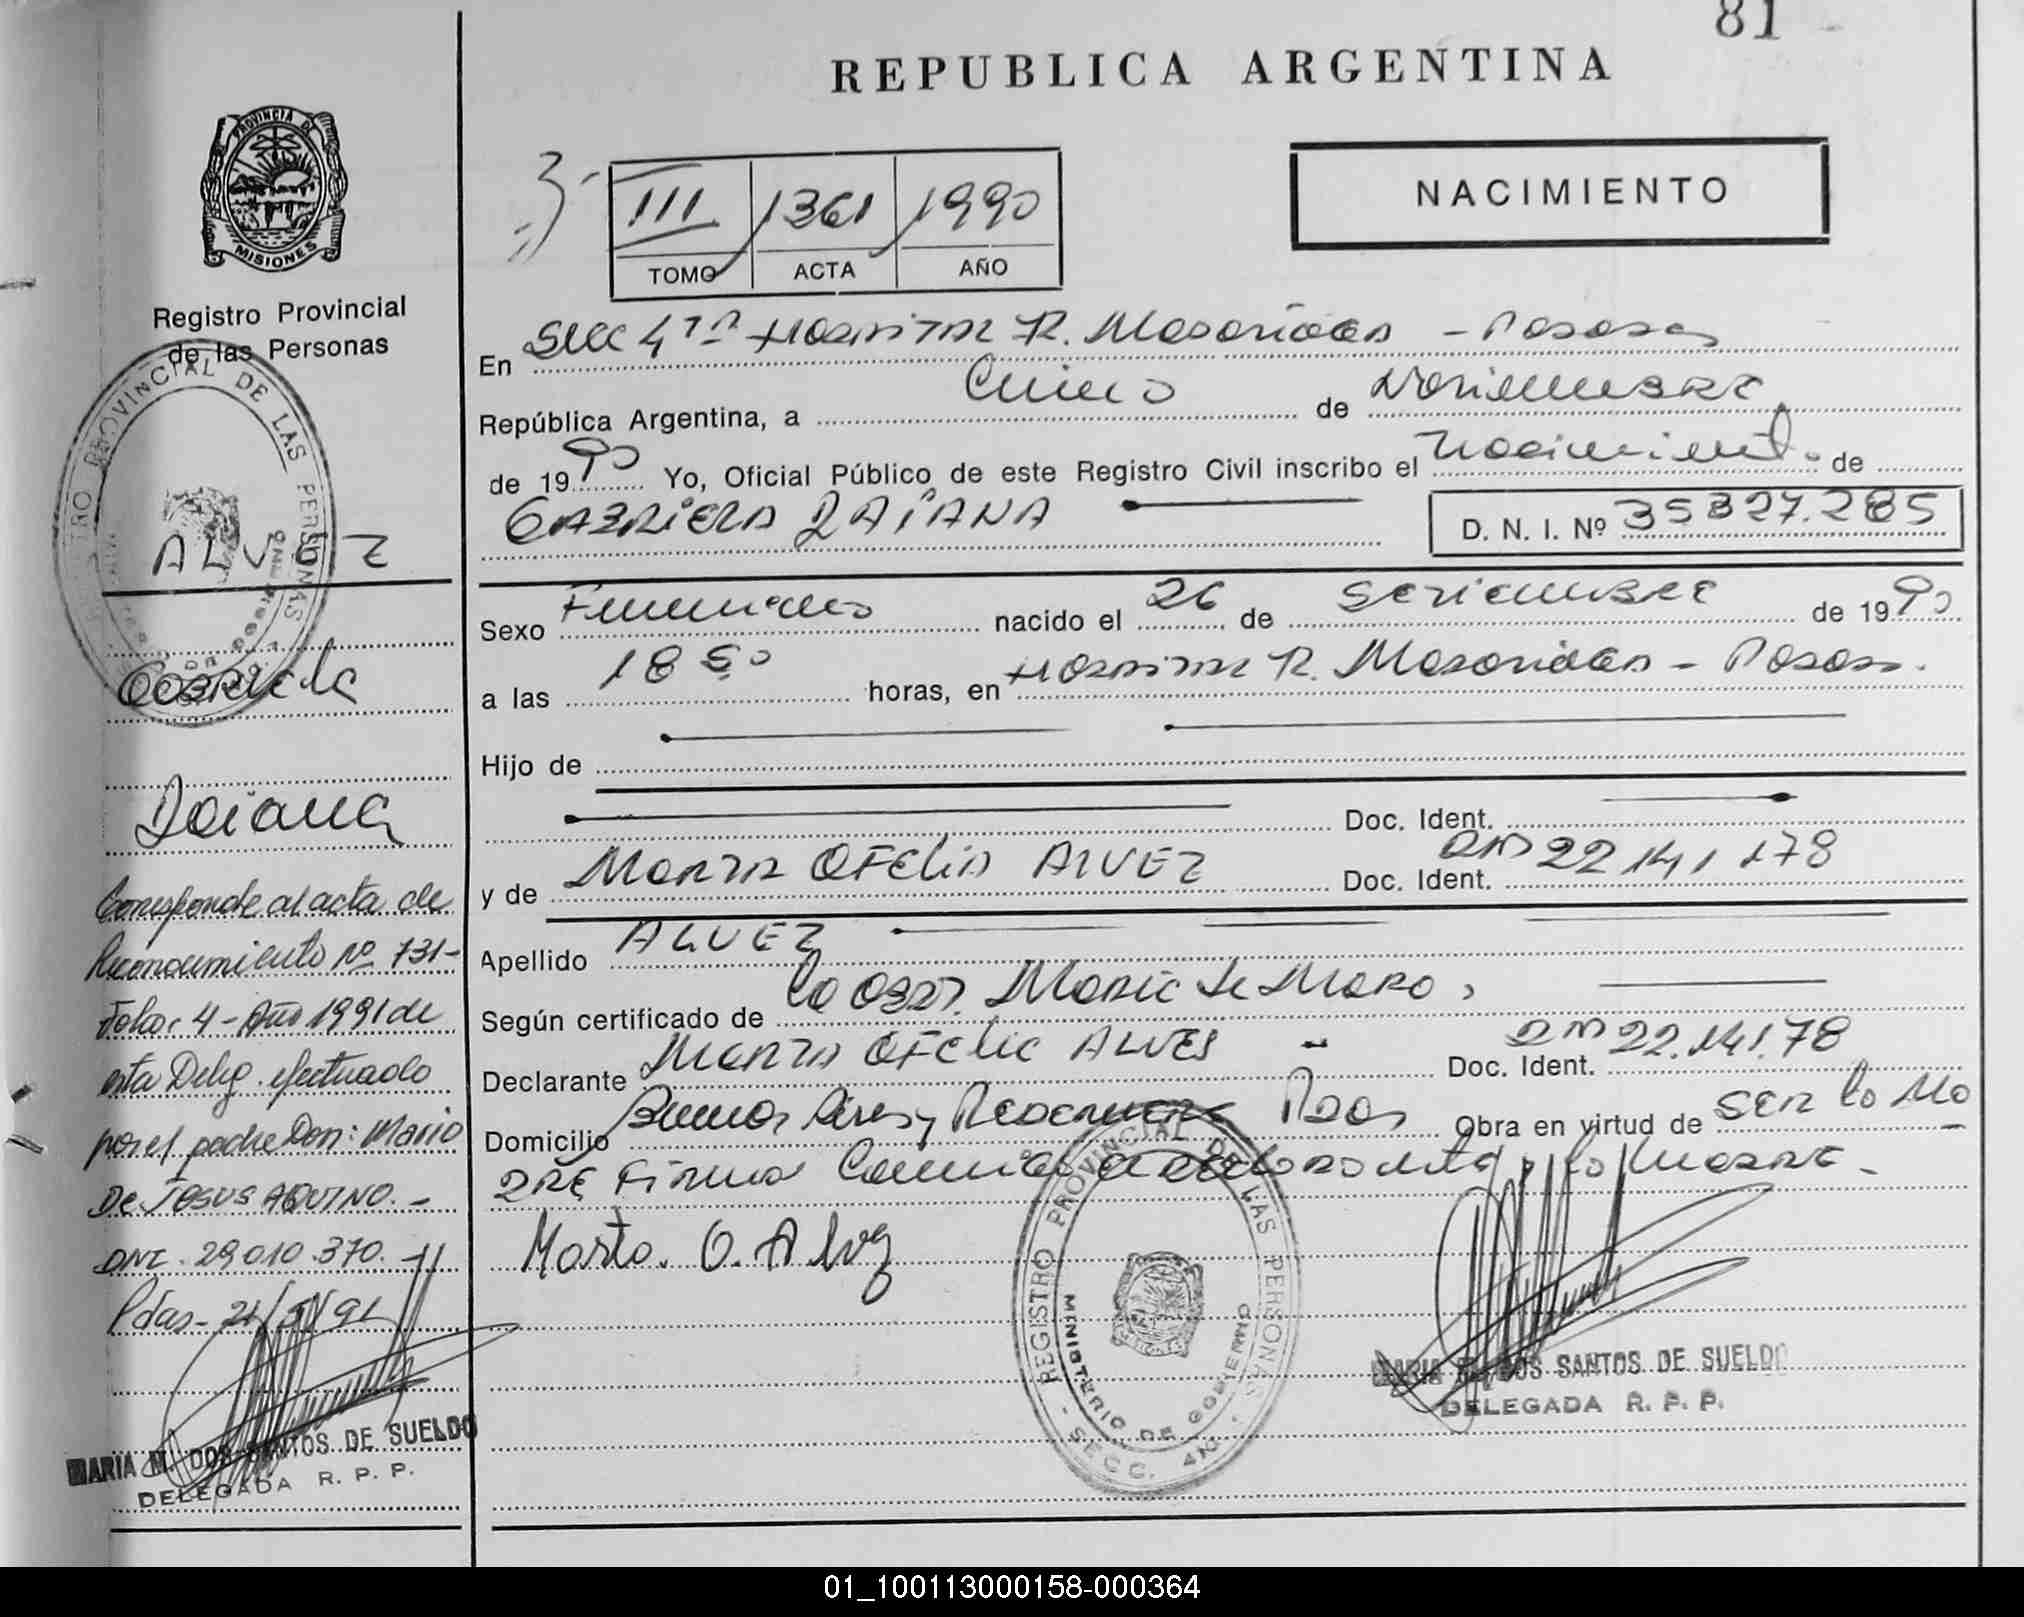 81
REPUBLICA ARGENTINA
PROVINCIA DE
MISIONES
Registro Provincial
de las Personas
III 1361 1990
TOMO ACTA AÑO
NACIMIENTO
En Secc 4ta Hospital R. Madariaga - Posadas
República Argentina, a Cinco de Noviembre
de 1990 Yo, Oficial Público de este Registro Civil inscribo el Nacimiento de
GABRIELA DAIANA D. N. I. Nº 35327.285
Sexo Femenino nacido el 26 de Setiembre de 1990
a las 18 50 horas, en Hospital R. Madariaga - Posadas.
Hijo de
Doc. Ident.
y de MARTA OFELIA ALVEZ Doc. Ident. DNI 22 141 178
Apellido ALVEZ
Según certificado de la Obst.
Declarante MARTA OFELIA ALVES Doc. Ident. DNI 22.141.78
Domicilio Buenos Aires y Pdas Obra en virtud de SER la MA
DRE Firma Conmigo la Madre -
Marta. O. Alvez
REGISTRO PROVINCIAL DE LAS PERSONAS
MINISTERIO DE GOBIERNO
- SECC. 4ta. -
DOS SANTOS DE SUELDO
DELEGADA R. P. P.
REGISTRO PROVINCIAL DE LAS PERSONAS
ALVEZ
Gabriela
Daiana
Corresponde al acta de
Reconocimiento Nº 131-
Folio 4 - Año 1991 de
esta Deleg. efectuado
por el padre Don: Mario
De JESUS AQUINO. -
DNI. 29010.370. -
Pdas- 21/5/91
MARIA M. DOS SANTOS DE SUELDO
DELEGADA R. P. P.
01_100113000158-000364